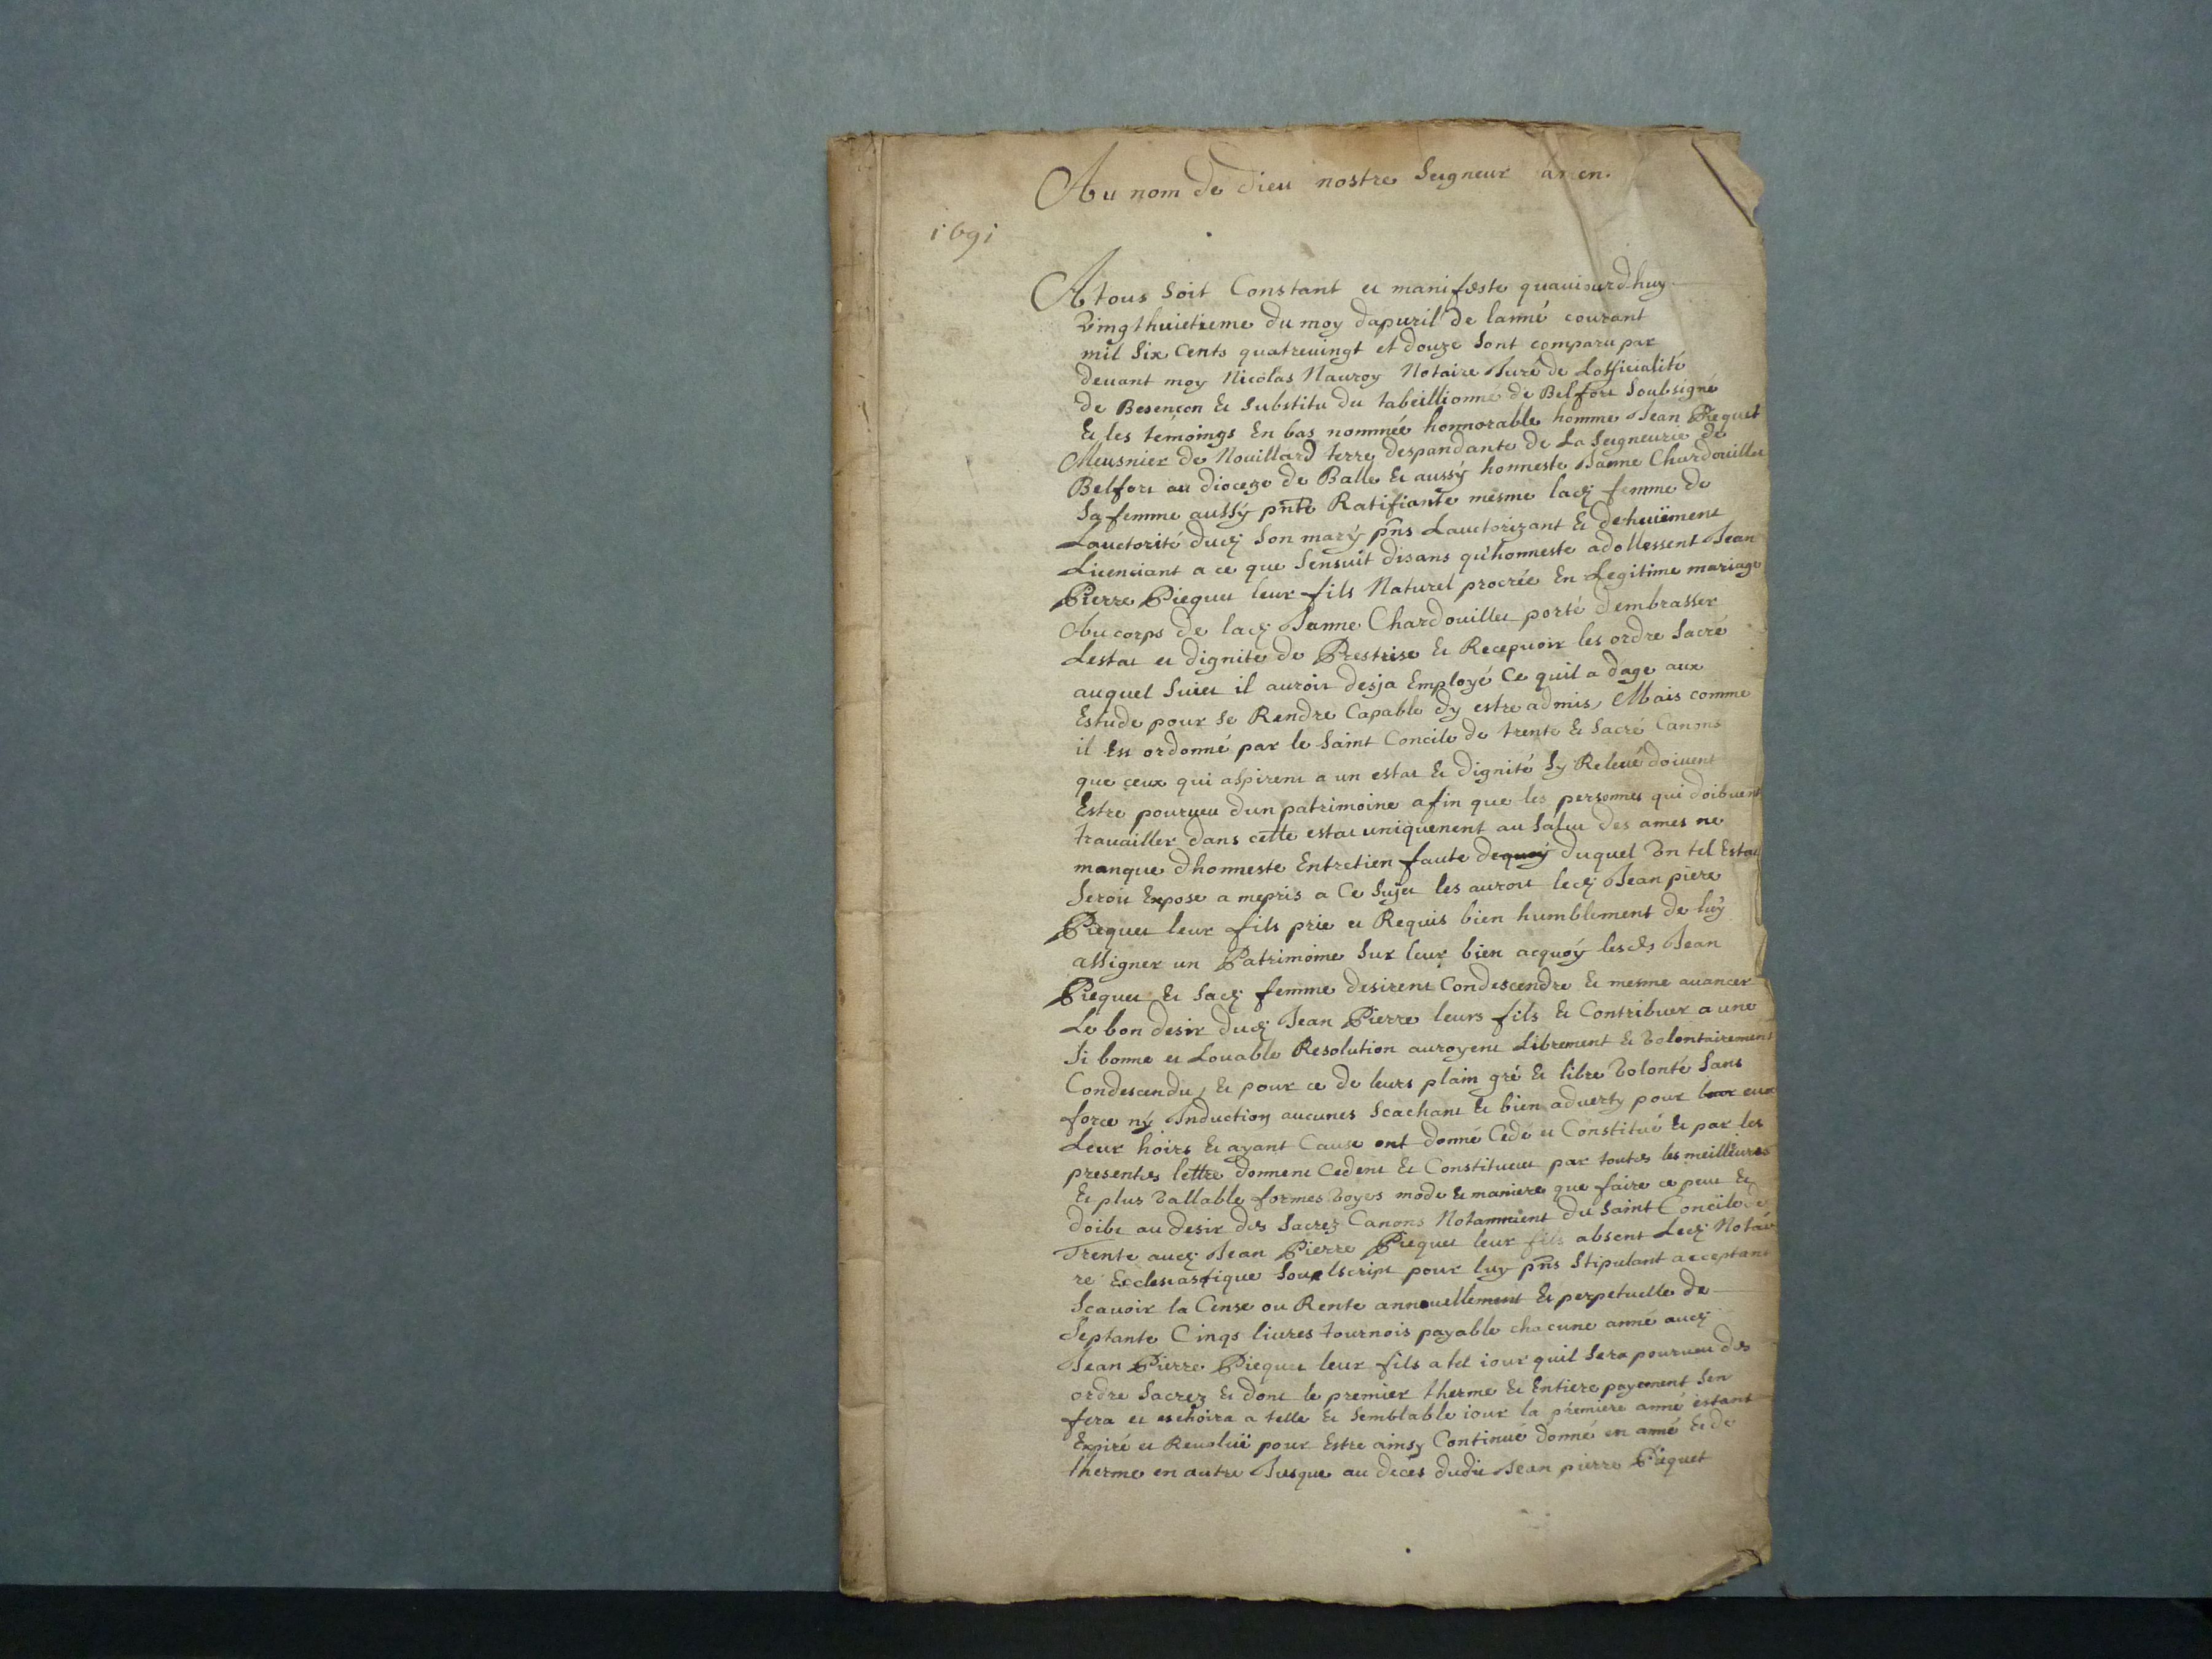 Au nom de dieu nostre Seigneur amen.
1691
A tous Soit Constant et manifeste quauiourdhuy
vingthuictieme du moy dapuril de lanné courant
mil Six Cents quatreuingt et douze Sont comparu par
deuant moy Nicolas Nauroy Notaire Juré de Lofficialité
de Besençon et Substitu du tabeillionné de Belfort Soubsigné
Et les témoings En bas nommée honnorable homme Jean Piequet
Meusnier de Nouillard terre despandante de La Seigneurie de
Belfort au dioceze de Balle et aussÿ honneste Janne Chardouillet
Sa femme aussÿ pnte Ratifiante mesme lad femme de
Lauctorité dud Son marÿ pns Lauctorizant et dehuïement
Licenciant a ce que Sensuit disans qu'honneste adollessent Jean
Pierre Piequet leur fils Naturel procrée En Legitime mariage
Au corps de lad Janne Chardouillet porté dembrasser
Lestat et dignite de Prestrise et Recepuoir les ordre Sacré
auquel Suiet il auroit desja Employé Ce quil a dage aux
Estude pour Se Rendre Capable dy estre admis, Mais comme
il Est ordonné par le Saint Concile de trente et Sacré Canons
que ceux qui aspirent a un estat et dignité Sy Releué doiuent
Estre pourueu dun patrimoine afin que les personnes qui doibuent
trauailler dans cette estat uniquement au Salut des ames ne
manque dhonneste Entretien faute dequoy duquel vn tel Estat
Seroit Expose a mepris a Ce Sujet les auroit led Jean piere
Piequet leur fils prie et Requis bien humblement de luÿ
assigner un Patrimoine Sur leur bien acquoÿ lesds Jean
Piequet et Sad femme desirent Condescendre et mesme auancer
Le bon desir dud Jean Pierre leurs fils et Contribuer a une
Si bonne et Louable Resolution auroyent Librement et volontairement
Condescendu, et pour ce de leurs plain gré et libre volonté Sans
force nÿ Induction aucunes Scachant et bien aduerty pour leur eux
Leur hoirs et ayant Cause ont donné Cedé et Constitué et par les
presentes lettre donnent Cedent et Constituent par toutes les meilleures
Et plus vallable formes voyes mode et maniere que faire ce peut et
doibt au desir des Sacrez Canons Notamment du Saint Concile de
Trente aud Jean Pierre Piequet leur fils absent Led Notai
re Ecclesiastique Soubscript pour luy pns Stipulant acceptant
Scauoir la Cense ou Rente annouellement et perpetuelle de
Septante Cinqs liures tournois payable chacune anné aud
Jean Pierre Piequet leur fils a tel iour quil Sera pourueu des
ordre Sacrez et dont le premier therme et Entiere payement Sen
fera et eschoira a telle et Semblable iour la premiere anné estant
Expiré et Reuoluë pour Estre ainsy Continué donné en anné et de
therme en autre Jusque au deces dudit Jean pierre Piequet